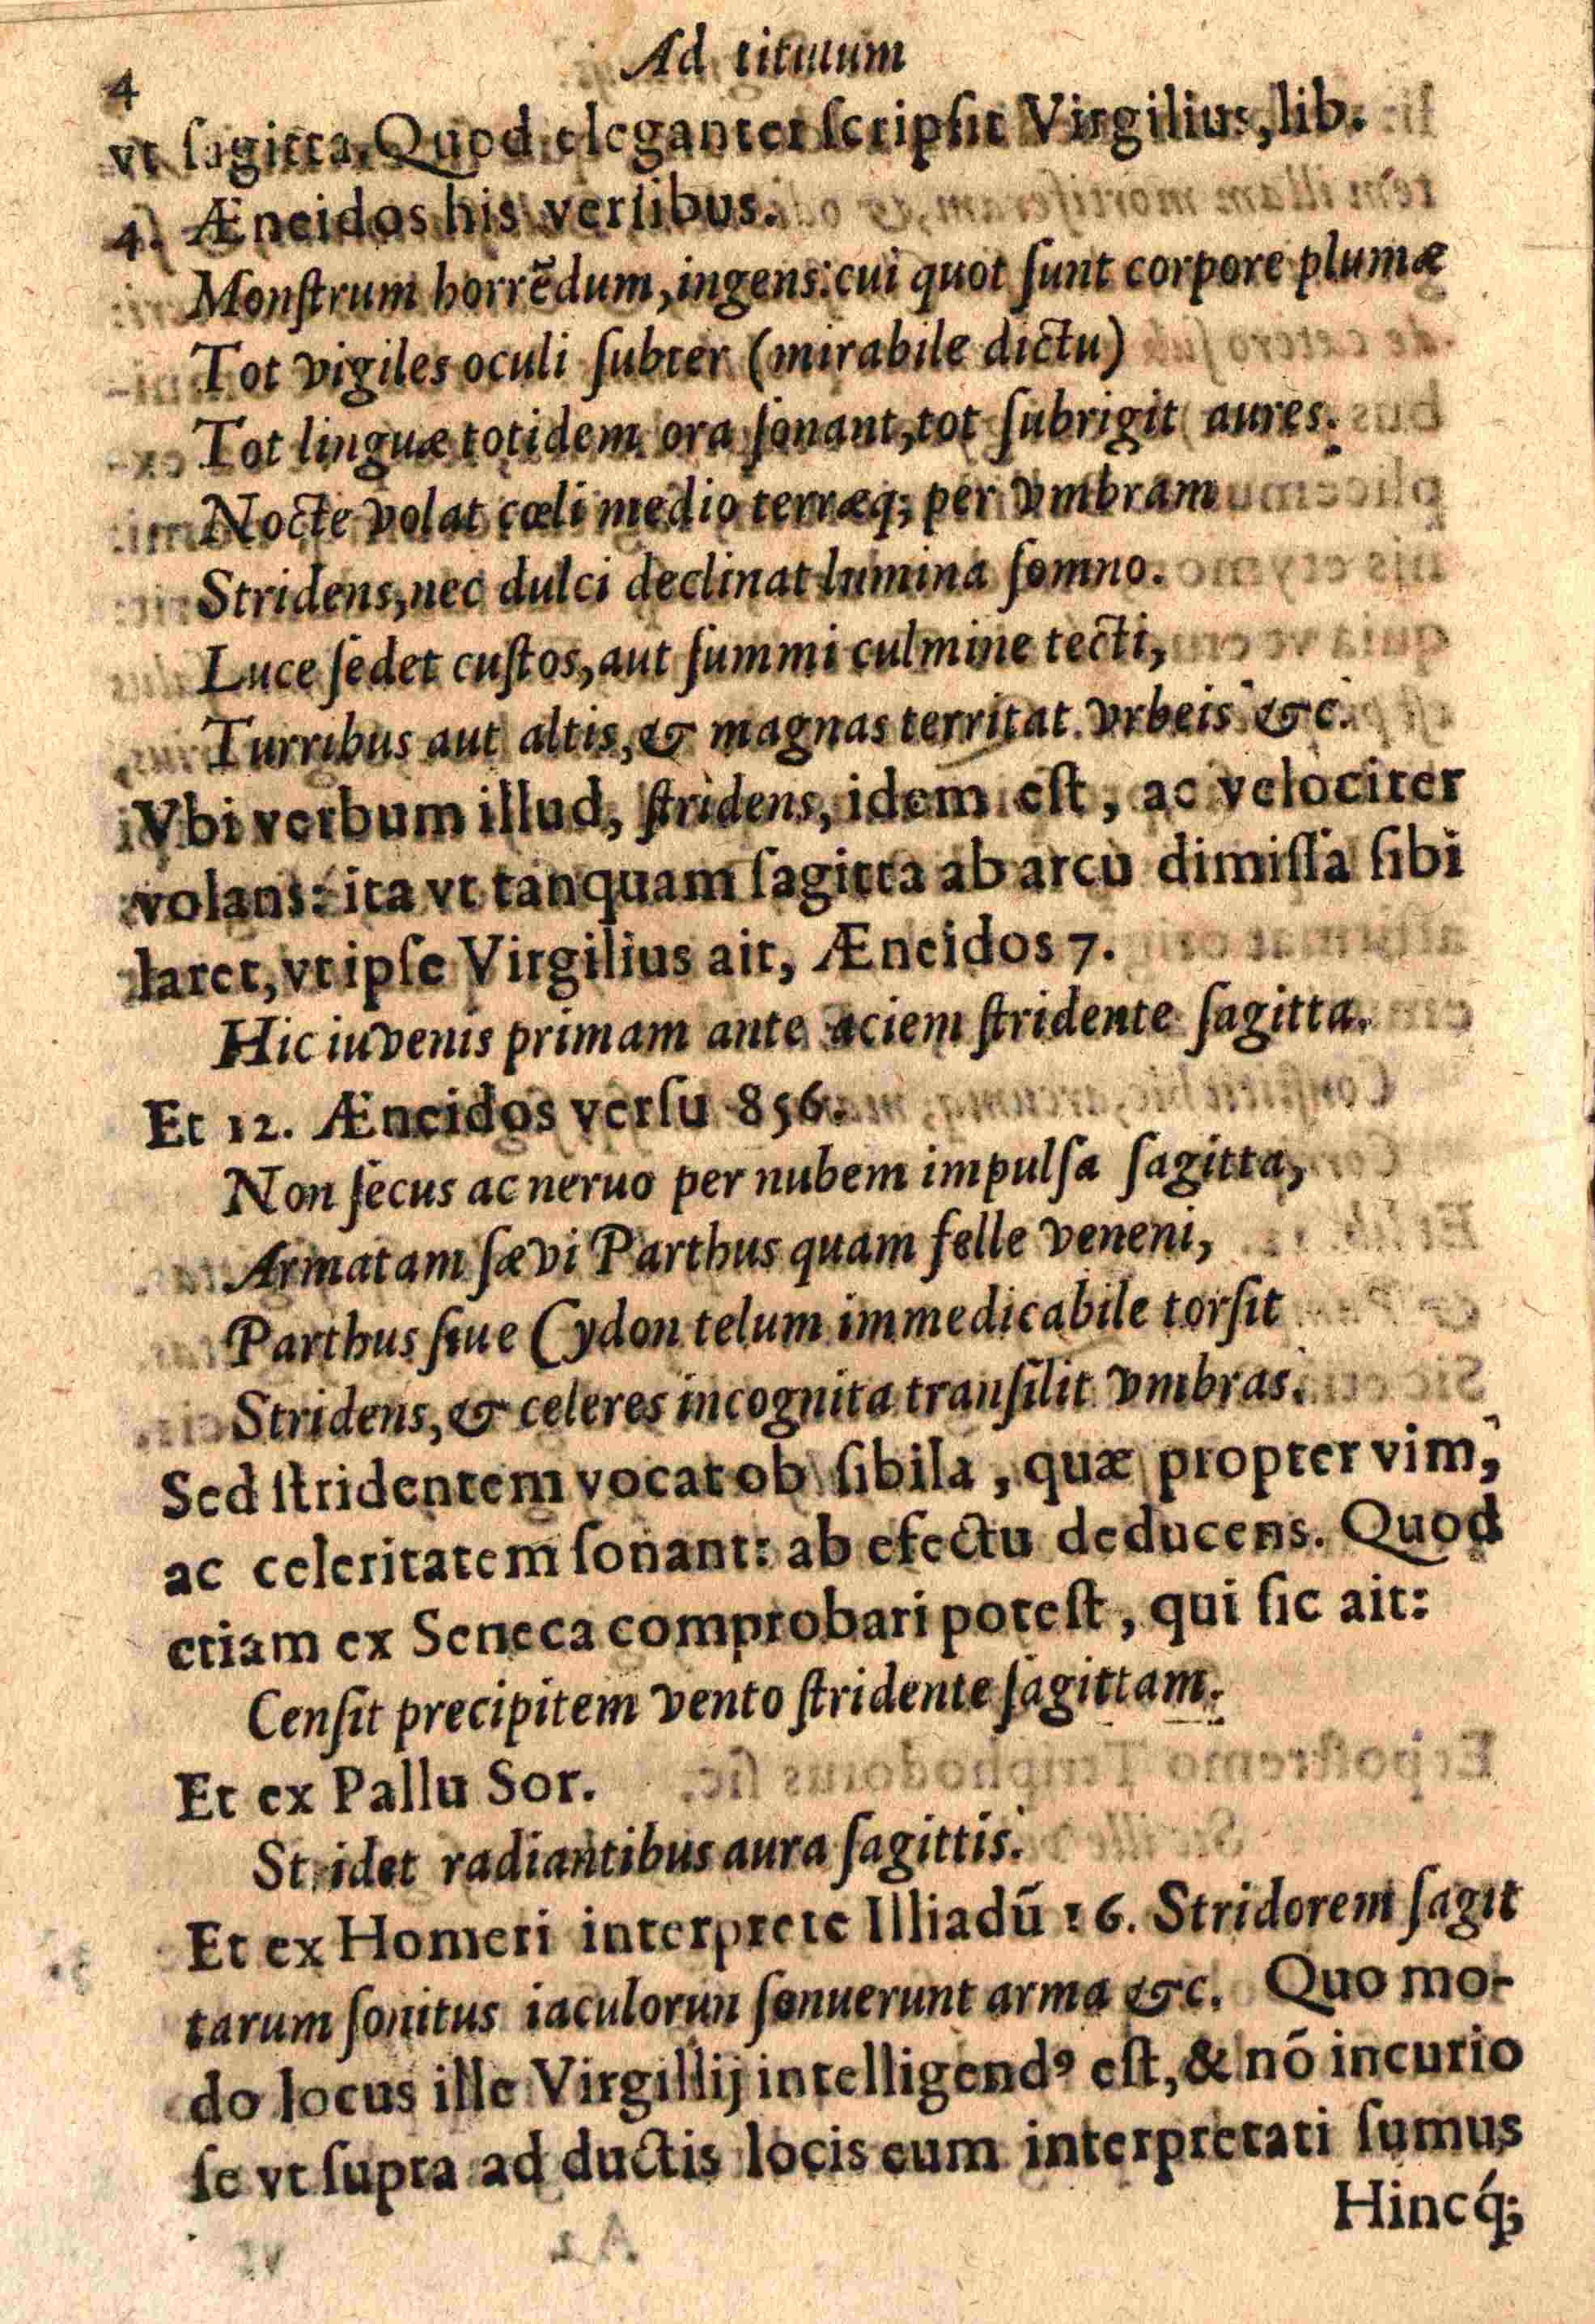 4
Ad titulum
vt ſagitta, Quod eleganter ſcripſit Virgilius, lib.
4. Æneidos his verſibus.
Monſtrum horrẽdum, ingens: cui quot ſunt corpore plumæ
Tot vigiles oculi ſubter (mirabile dictu)
Tot linguæ totidem ora ſonant, tot ſubrigit aures.
Nocte volat cœli medio terræq; per vmbram
Stridens, nec dulci declinat lumina ſomno.
Luce ſedet cuſtos, aut ſummi culmine tecti,
Turribus aut altis, & magnas territat vrbeis &c.
Vbi verbum illud, ſtridens, idem eſt, ac velociter
volans: ita vt tanquam ſagitta ab arcu dimiſſa ſibi
laret, vt ipſe Virgilius ait, Æneidos 7.
Hic iuvenis primam ante aciem ſtridente ſagitta.
Et 12. Æneidos verſu 856.
Non ſecus ac neruo per nubem impulſa ſagitta,
Armatam ſævi Parthus quam felle veneni,
Parthus ſiue Cydon telum immedicabile torſit
Stridens, & celeres incognita tranſilit vmbras.
Sed ſtridentem vocat ob ſibila, quæ propter vim,
ac celeritatem ſonant: ab efectu deducens. Quod
etiam ex Seneca comprobari poteſt, qui ſic ait:
Cenſit precipitem vento ſtridente ſagittam.
Et ex Pallu Sor.
Stridet radiantibus aura ſagittis.
Et ex Homeri interprete Illiadũ 16. Stridorem ſagit
tarum ſonitus iaculorun ſonuerunt arma &c. Quo mo-
do locus ille Virgillij intelligendꝰ eſt, & nõ incurio
ſe vt ſupra ad ductis locis eum interpretati ſumus
Hincq́;